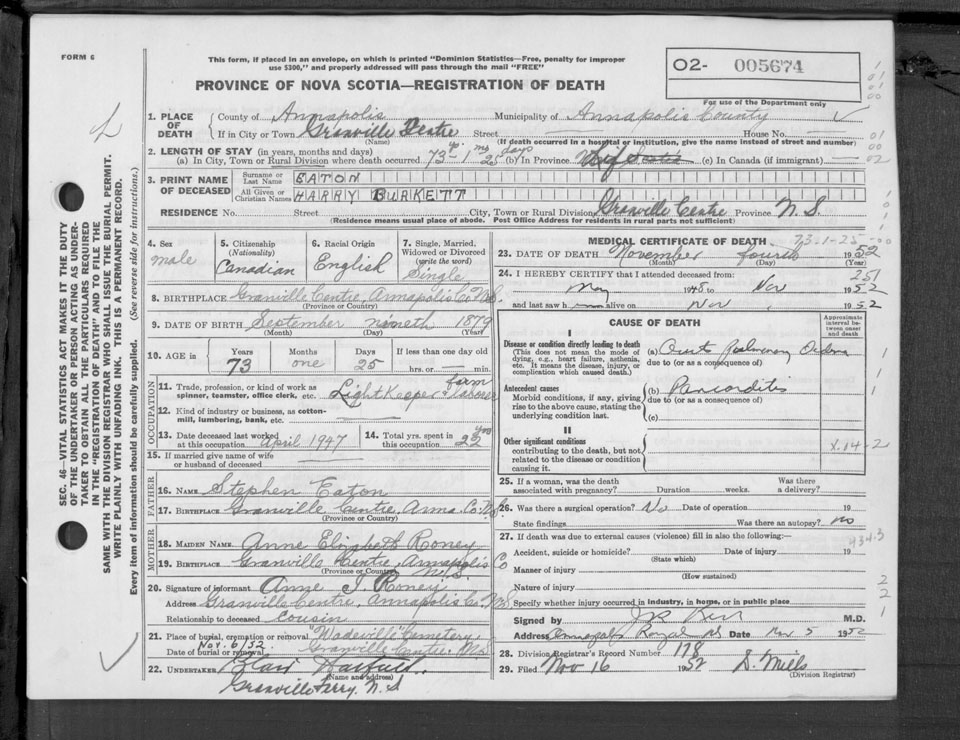 FORM 6
This form, if placed in an envelope, on which is printed "Dominion Statistics—Free, penalty for improper
use $300," and properly addressed will pass through the mail "FREE"
PROVINCE OF NOVA SCOTIA—REGISTRATION OF DEATH
02- 005674
For use of the Department only
1. PLACE OF DEATH
County of Annapolis Municipality of Annapolis County
If in City or Town Granville Centre Street House No.
(Name) (If death occurred in a hospital or institution, give the name instead of street and number)
2. LENGTH OF STAY (in years, months and days)
(a) In City, Town or Rural Division where death occurred 73 yr 1 ms 25 days (b) In Province (c) In Canada (if immigrant)
3. PRINT NAME OF DECEASED
Surname or Last Name EATON
All Given or Christian Names HARRY BURKETT
RESIDENCE No. Street City, Town or Rural Division Granville Centre Province N.S.
(Residence means usual place of abode. Post Office Address for residents in rural parts not sufficient)
4. Sex
male
5. Citizenship
(Nationality)
Canadian
6. Racial Origin
English
7. Single, Married,
Widowed or Divorced
(write the word)
Single
8. BIRTHPLACE Granville Centre, Annapolis Co. N.S.
(Province or Country)
9. DATE OF BIRTH September nineth 1879
(Month) (Day) (Year)
10. AGE in
Years Months Days If less than one day old
73 one 25 hrs. or min.
OCCUPATION
11. Trade, profession, or kind of work as
spinner, teamster, office clerk, etc. Light Keeper farm laborer
12. Kind of industry or business, as cotton-
mill, lumbering, bank, etc.
13. Date deceased last worked
at this occupation April 1947
14. Total yrs. spent in
this occupation 22 yrs
15. If married give name of wife
or husband of deceased
FATHER
16. NAME Stephen Eaton
17. BIRTHPLACE Granville Centre, Anna. Co. N.S.
(Province or Country)
MOTHER
18. MAIDEN NAME Anne Elizabeth Roney
19. BIRTHPLACE Granville Centre, Annapolis Co
(Province or Country) N.S.
20. Signature of informant Anne I. Roney
Address Granville Centre, Annapolis Co. N.S
Relationship to deceased Cousin
21. Place of burial, cremation or removal "Wadeville" Cemetery
Date of burial or removal Nov. 6/52 Granville Centre. N.S.
22. UNDERTAKER Blair Hatfield
(Name and address)
Granville Ferry, N.S
MEDICAL CERTIFICATE OF DEATH 73-1-25
23. DATE OF DEATH November fourth 1952
(Month) (Day) (Year)
24. I HEREBY CERTIFY that I attended deceased from: 251
May 1945 to Nov 1952
and last saw h alive on Nov 1952
CAUSE OF DEATH
Approximate interval between onset and death
I
Disease or condition directly leading to death
(This does not mean the mode of
dying, e.g., heart failure, asthenia,
etc. It means the disease, injury, or
complication which caused death.)
(a) Pulmonary
due to (or as a consequence of)
Antecedent causes
Morbid conditions, if any, giving
rise to the above cause, stating the
underlying condition last.
(b) Pericarditis
due to (or as a consequence of)
(c)
II
Other significant conditions
contributing to the death, but not
related to the disease or condition
causing it.
X14-2
25. If a woman, was the death
associated with pregnancy? Duration weeks. Was there a delivery?
26. Was there a surgical operation? No Date of operation 19
State findings Was there an autopsy? no
27. If death was due to external causes (violence) fill in also the following:—
434.3
Accident, suicide or homicide? Date of injury 19
(State which)
Manner of injury
(How sustained)
Nature of injury
Specify whether injury occurred in industry, in home, or in public place
Signed by M.D.
Address Annapolis Royal NS Date Nov 5 1952
28. Division Registrar's Record Number 178
29. Filed Nov 16 1952 D. Mills
(Division Registrar)
SEC. 46—VITAL STATISTICS ACT MAKES IT THE DUTY
OF THE UNDERTAKER OR PERSON ACTING AS UNDER-
TAKER TO OBTAIN ALL THE PARTICULARS REQUIRED
IN THE "REGISTRATION OF DEATH" AND TO FILE THE
SAME WITH THE DIVISION REGISTRAR WHO SHALL ISSUE THE BURIAL PERMIT.
WRITE PLAINLY WITH UNFADING INK. THIS IS A PERMANENT RECORD.
Every item of information should be carefully supplied. (See reverse side for instructions.)